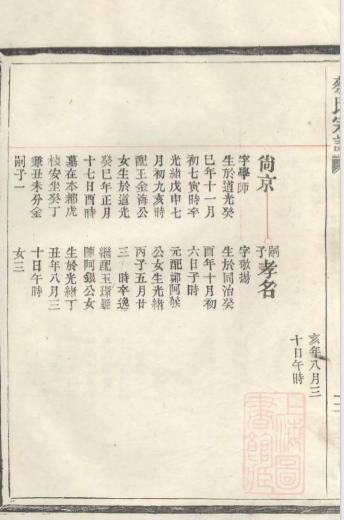 亥年八月三
十日午時
尙京
字學師
生於道光癸
巳年十一月
初七寅時卒
光緒戊申七
月初九亥時
配王金海公
女生於道光
癸巳年正月
十七日酉時
墓在本都虎
枝安坐癸丁
兼丑未分金
嗣子一
嗣子孝名
字敬揚
生於同治癸
酉年十月初
六日子時
元配鄭阿
公女生光緒
丙子五月廿
三時卒逸
繼配玉環
陳阿銀公女
生於光緒丁
丑年八月三
十日午時
女三
上海圖書館藏